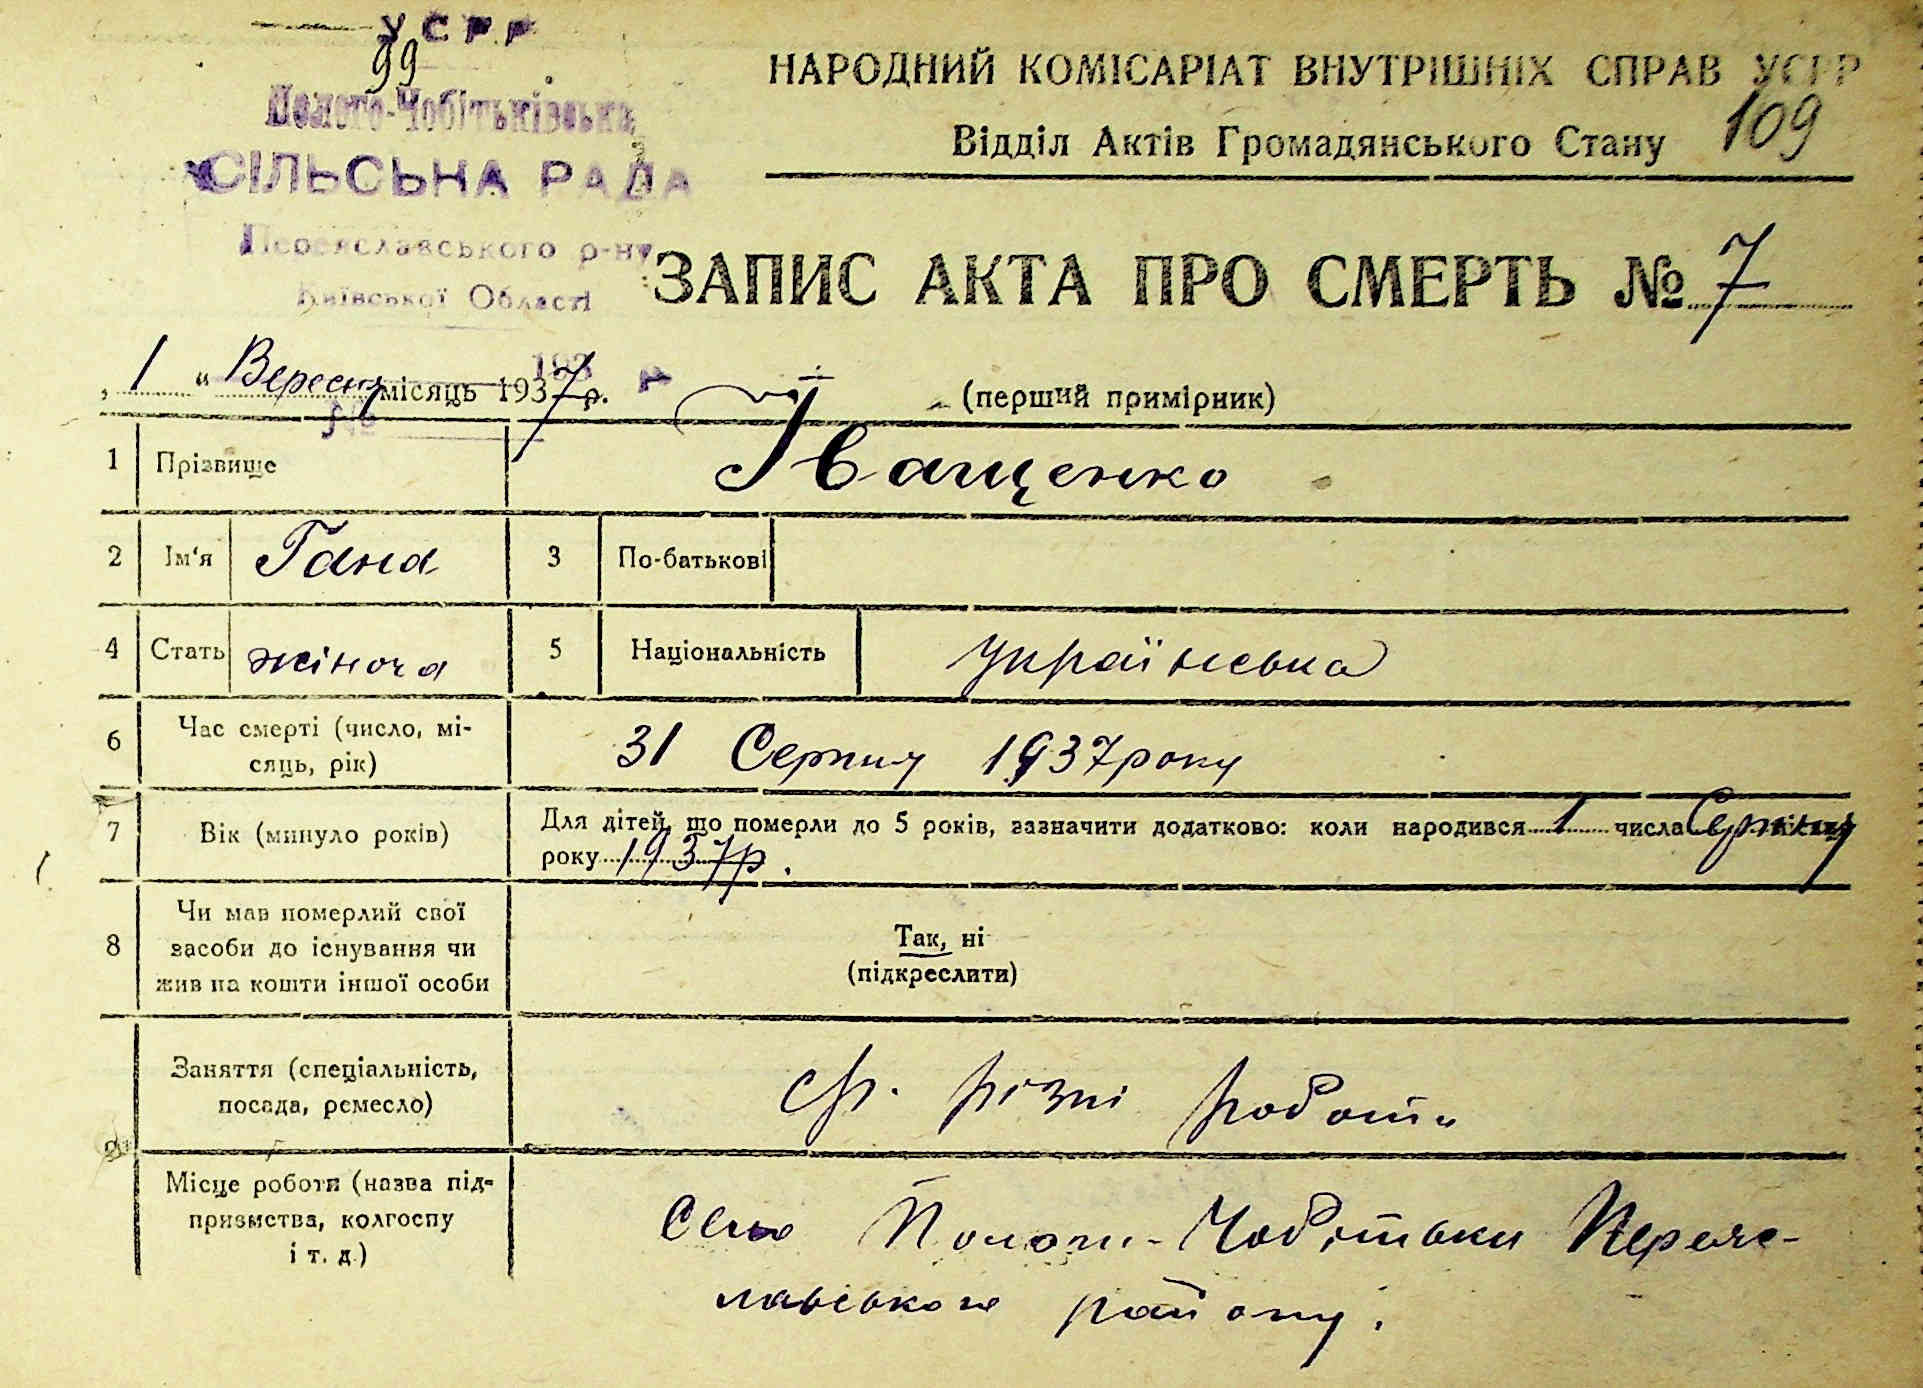 УСРР
99
Пологo-Чобітьківська
СІЛЬСЬКА РАДА
Переяславського р-ну
Київської Області
НАРОДНИЙ КОМІСАРІАТ ВНУТРІШНІХ СПРАВ УСРР
Відділ Актів Громадянського Стану 109
ЗАПИС АКТА ПРО СМЕРТЬ № 7
„ 1 " Вересня місяць 1937 р.
193
№
(перший примірник)
1 Прізвище Іващенко
2 Ім'я Гана 3 По-батькові
4 Стать жіноча 5 Національність Українська
6 Час смерті (число, мі-
сяць, рік) 31 Серпня 1937 року
7 Вік (минуло років) Для дітей, що померли до 5 років, зазначити додатково: коли народився 1 числа Серпня
року 1937 р.
8 Чи мав померлий свої
засоби до існування чи
жив на кошти іншої особи
Так, ні
(підкреслити)
9
Заняття (спеціальність,
посада, ремесло) різні роботи
Місце роботи (назва під-
приємства, колгоспу
і т. д.)
Село Пологи-Чобітьки Переяс-
лавського району.